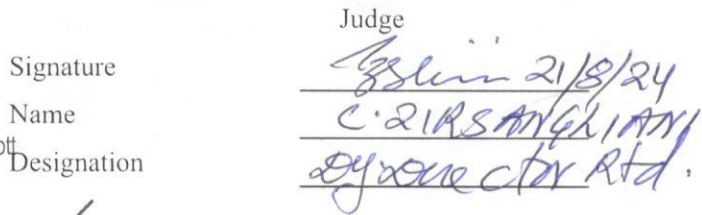 Judge
Signature 21/8/24
Name C. ZIRSANGLIANI
ott
Designation Dy Director Rtd.